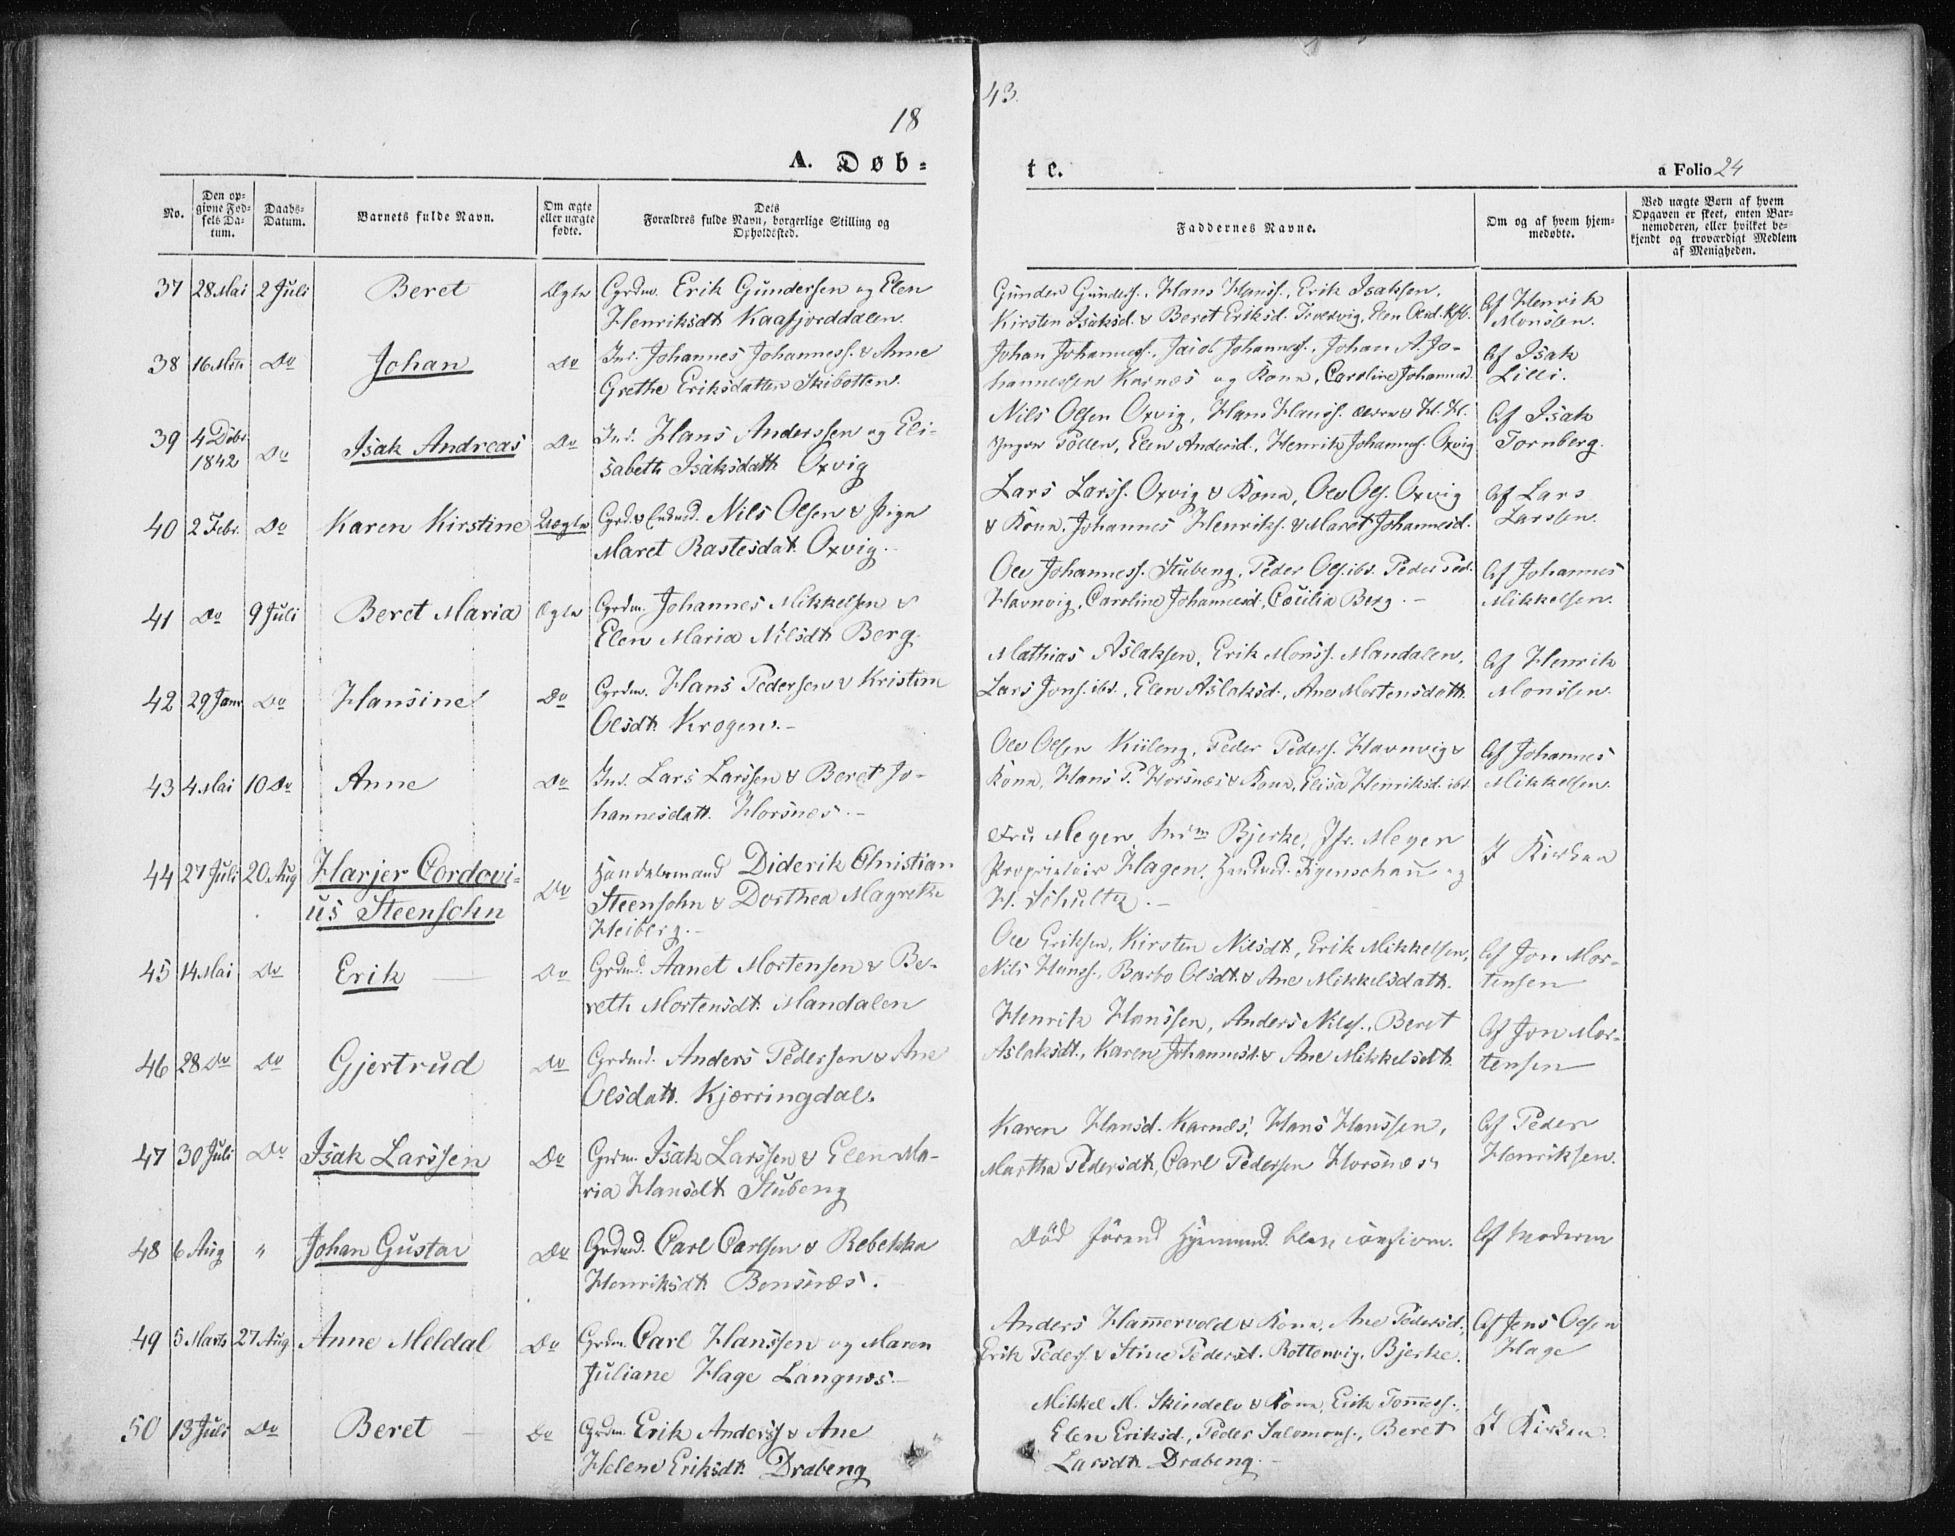 18
43.
A. Døb-
te.
a Folio 24
No.
Den op-
givne Fød-
sels Da-
tum.
Daabs-
Datum.
Barnets fulde Navn.
Om ægte
eller uægte
fødte.
Dets
Forældres fulde Navn, borgerlige Stilling og
Opholdssted.
Faddernes Navne.
Om og af hvem hjem-
medøbte.
Ved uægte Børn af hvem
Opgaven er skeet, enten Bar-
nemoderen, eller hvilket be-
kjendt og troværdigt Medlem
af Menigheden.
37 28 Mai 2 Juli Beret Ægte Gyrdm. Erik Gundersen og Elen
Henriksdt. Kaafjorddalen.
Gunder Gunders., Hans Hanss., Erik Isaksen,
Kirsten Isaksd. & Beret Eriksd.
Af Henrik
Monsen.
38 16 Do Johan Do Ind. Johannes Johanness. & Anne
Grethe Eriksdatter Skibotten.
Johan Johanness., Jacob Johanness., Johan A. Jo-
hannessen Karnæs og Kona, Caroline Johannesd.
Af Isak
Lilli.
39 4 Debr.
1842 Do Isak Andreas Do Ind. Hans Anderssen og Eli-
sabeth Isaksdatt. Oxvig
Nils Olsen Oxvig, Hans Hanss. & H. H.
Pollen, Elen Andersd., Henrik Johanness. Oxvig
Af Isak
Tornberg.
40 2 Febr. Do Karen Kirstine Uægte Nils Olsen & Pige
Maret Rastesdat. Oxvig.
Lars Larss. Oxvig & Kona, Ole Ols. Oxvig
& Kona, Johannes Henriks. & Maret Johannesd.
Af Lars
Larssen.
41 Do 9 Juli Beret Maria Ægte Gyrdm. Johannes Mikkelsen &
Elen Maria Nilsdt. Berg.
Ole Johanness. Stubeng, Peder Ols. ibd. Peder Ped.
Havnvig, Caroline Johannesd., Cecilia Berg.
Af Johannes
Mikkelsen.
42 29 Janr. Do Hansine Do Gyrdm. Hans Pedersen & Kristine
Olsdt. Krogen.
Mathias Aslaksen, Erik Monss. Mandalen,
Lars Jons. ibd., Elen Aslaksd., Ane Mortensdatt.
Af Henrik
Monssen.
43 4 Mai 10 Do Anne Do Ind. Lars Larssen & Beret Jo-
hannesdatt. Horsnæs.
Ole Olsen Kileng, Peder Peders. Havnvig &
Kona, Hans P. Horsnæs & Kona, Elisa Henriksd. ibd.
Af Johannes
Mikkelsen.
44 27 Juli 20 Aug Harjer Cordovi-
us Steensohn Do Handelsmand Diderik Christian
Steensohn & Dorthea Magrethe
Heiberg.
Fru Meyer, Bjerke, Jfr. Meyer
Proprietair Hagen, Figenschau og
H. Schultz.
I Kirken
45 14 Mai Do Erik Do Gyrdmd. Aanet Mortensen & Be-
reth Mortensdt. Mandalen
Ole Eriksen, Kirsten Nilsdt., Erik Mikkelsen,
Nils Hanss., Barbo Olsdt. & Ane Mikkelsdatt.
Af Jon Mor-
tensen
46 28 Do Do Gjertrud Do Gyrdmd. Anders Pedersen & Ane
Olsdatt. Kjærringdal.
Henrik Hanssen, Anders Nilss., Beret
Aslaksdt., Karen Johannesd. & Ane Mikkelsdt.
Af Jon Mor-
tensen
47 30 Juli Do Isak Larssen Do Isak Larssen & Elen Ma-
ria Hansdt. Stubeng
Karen Hansd. Karnæs, Hans Hanssen,
Martha Pedersdt., Carl Pedersen Horsnæs
Af Peder
Henriksen.
48 6 Aug " Johan Gustav Do Gyrdmd. Carl Carlsen & Rebekka
Henriksdt. Bensnæs.
Død
Af Moderen
49 5 Marts 27 Aug Anne Meldal Do Gyrdm. Carl Hanssen og Maren
Juliane Hage Langnæs.
Anders Hammervold & Kona, Ane Pedersd.,
Erik Peders. & Stine Pedersd. Rottenvig, Bjerke.
Af Jens Olsen
Hage
50 13 Juli Do Beret Do Gyrdm. Erik Anderss. & Ane
Helene Eriksdt. Drabeng
Mikkel M. Skindelv & Kona, Erik Tomess.,
Elen Eriksd., Peder Salomons., Beret
Larsdt. Drabeng.
I Kirken.